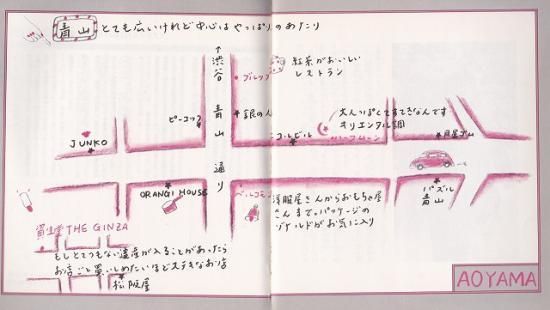 青山 とても広いけれど中心はやっぱりのあたり
↑渋谷
青山通り
紅茶がおいしい
レストラン
ピーコック
銀の人
大人っぽくてすてきなんです
オリエンタル調
ハーフムーン
JUNKO
ニコルビル
月星ゴム
ORANGE HOUSE
ベルコモンズ
洋服屋さんからおもちゃ屋
さんまで。パッケージの
がお気に入り
パズル
青山
資生堂 THE GINZA
もしとてつもない遺産が入ることがあったら
お店ごと買いしめたいほどステキなお店
松阪屋
AOYAMA